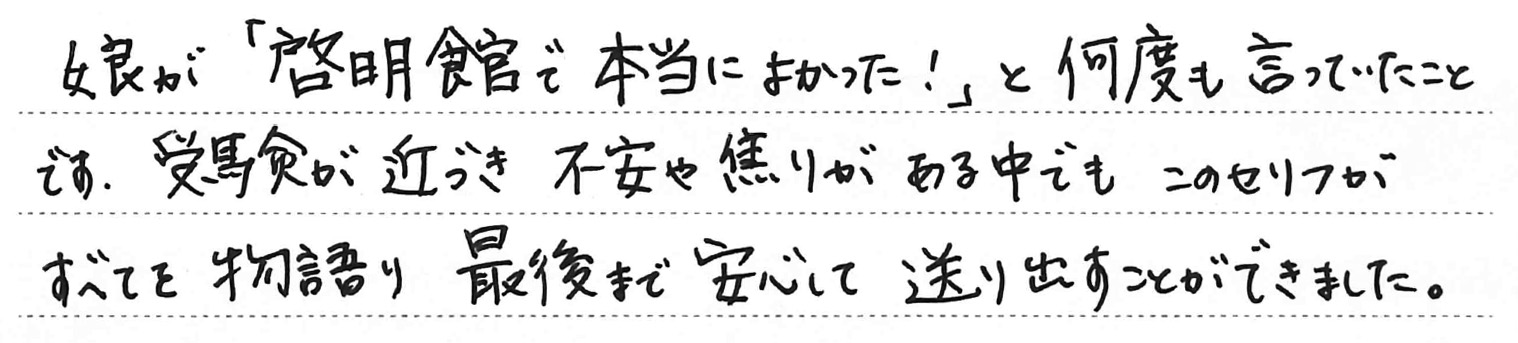 娘が「啓明館で本当によかった！」と何度も言っていたこと
です. 受験が近づき 不安や焦りがある中でも このセリフが
すべてを物語り 最後まで安心して送り出すことができました。